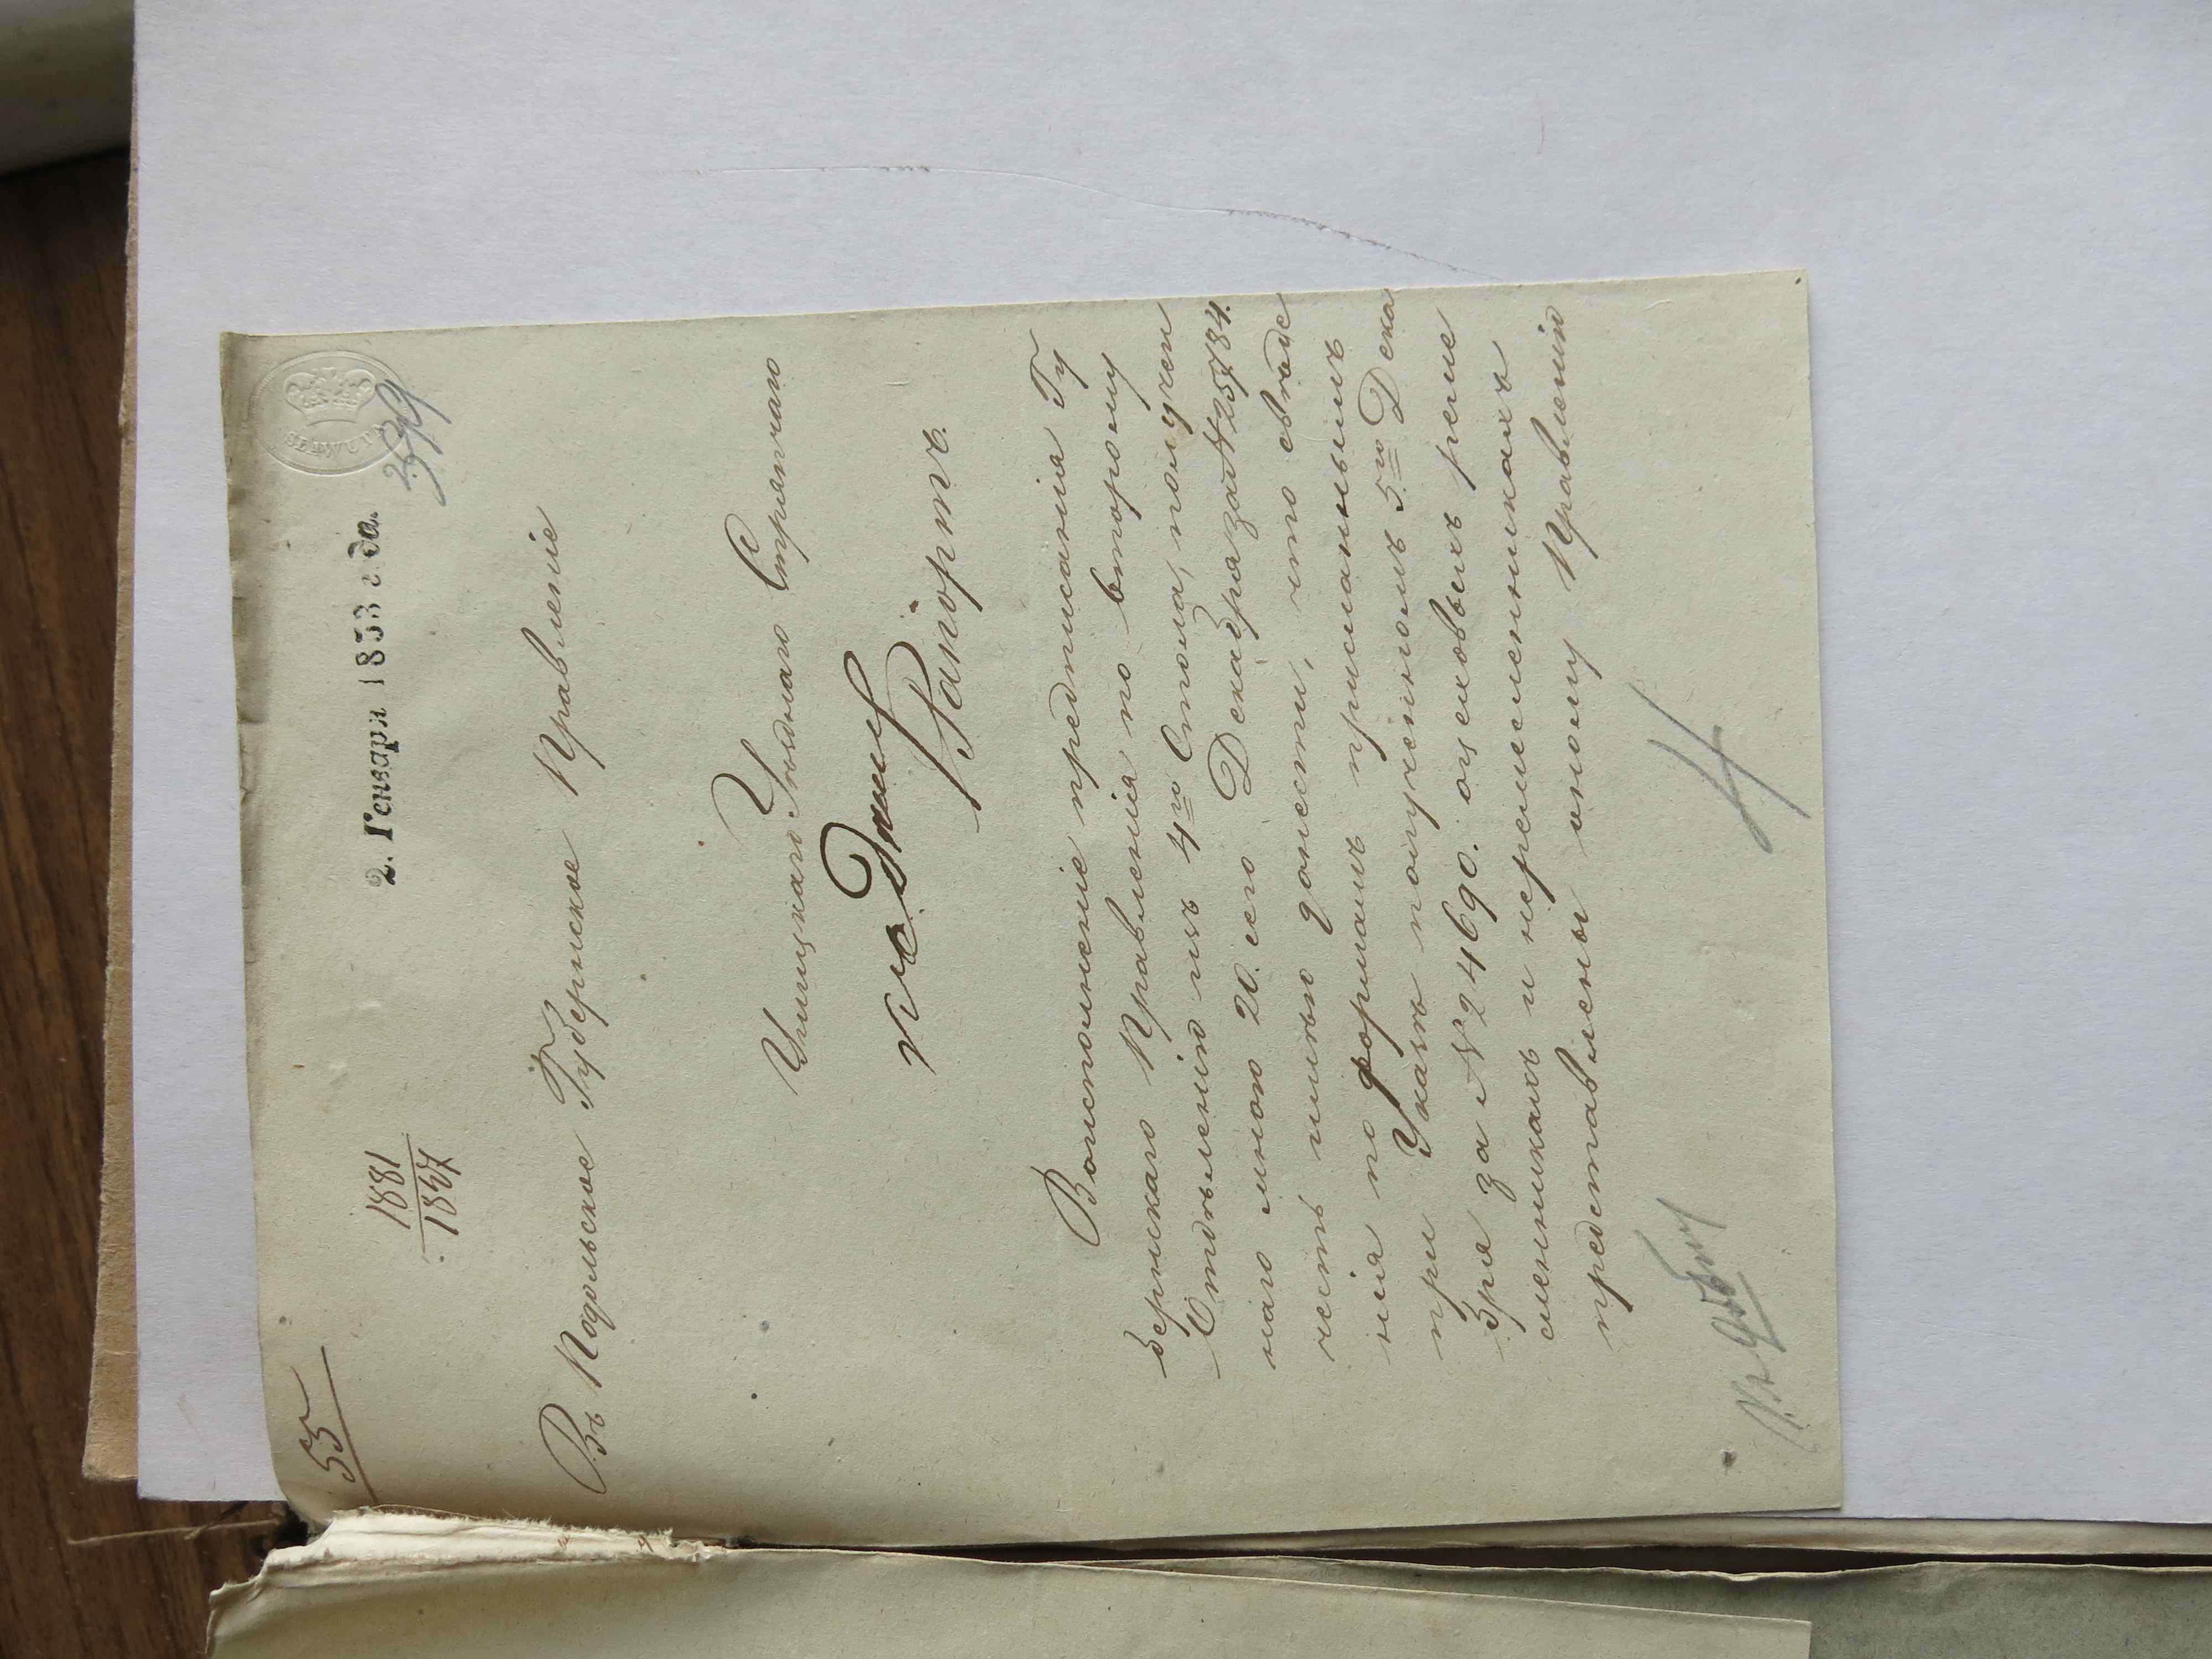 55
1881
1847
2. Генваря 1853 года.
399
Въ Подольское Губернское Правленіе
Ушицкаго Уѣзднаго Стряпчаго
Рапортъ.
Воисполненіе предписанія Гу
бернскаго Правленія по второму
Отдѣленію изъ 4го Стола, получен
наго мною 20. сего Декабря за № 25784.
честь имѣю донести, что свѣдѣ
нія по формамъ присланнымъ
при Указѣ полученномъ 5го Дека
бря за № 24690. о цеховыхъ реме
сленникахъ и неремесленникахъ
представлены оному Правленію